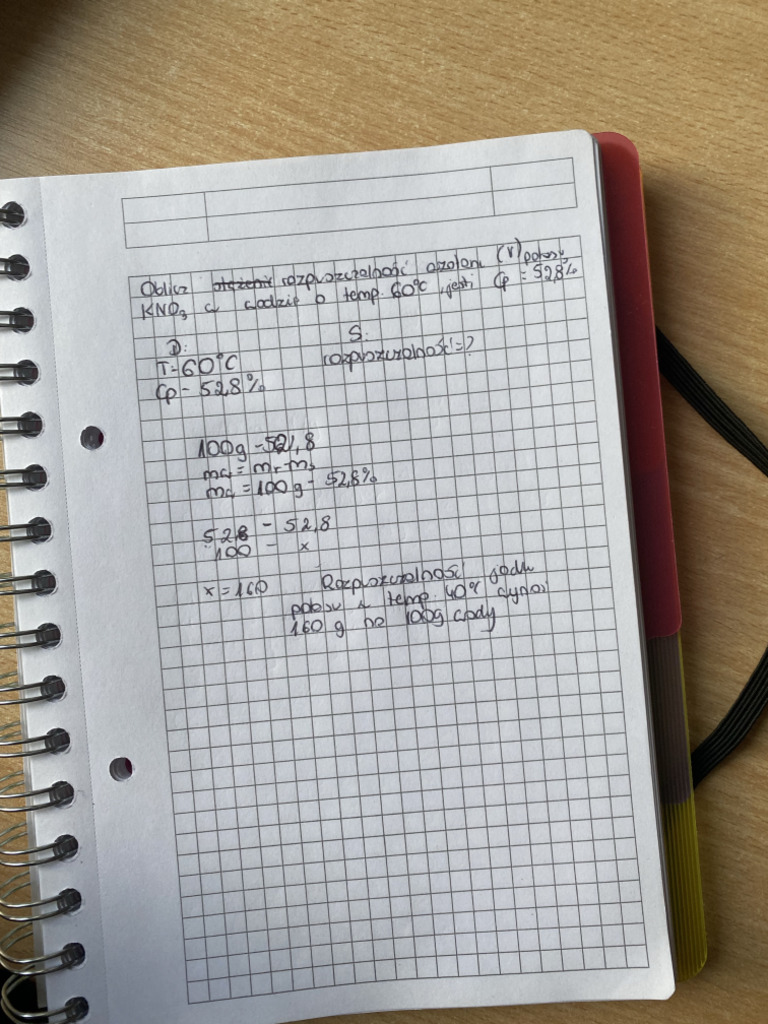 Oblicz stężenie rozpuszczalność azotanu (V) potasu
KNO₃ w wodzie o temp. 60°C, jeśli Cp = 52,8%
D:
S:
T=60°C
rozpuszczalność=?
Cp - 52,8%
100g - 52,8
mw = mr - ms
mw = 100g - 52,8%
52,8 - 52,8
100 - x
x = 160
Rozpuszczalność jodku
potasu w temp. 40°C wynosi
160 g na 100g wody